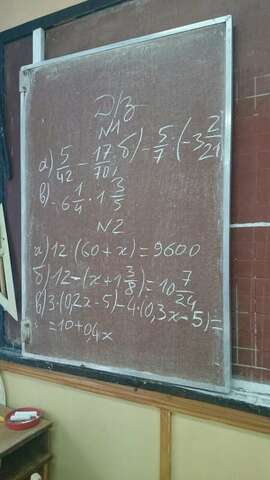 Д/З
N1
а) 5/42 - 17/70; б) - 5/7 : (-3 2/21
в) - 6 1/4 · 1 3/5
N2
а) 12 (60 + x) = 9600
б) 12 - (x + 1 3/8) = 10 7/24
в) 3·(0,2x - 5) - 4·(0,3x - 5) =
= 10 + 0,4x